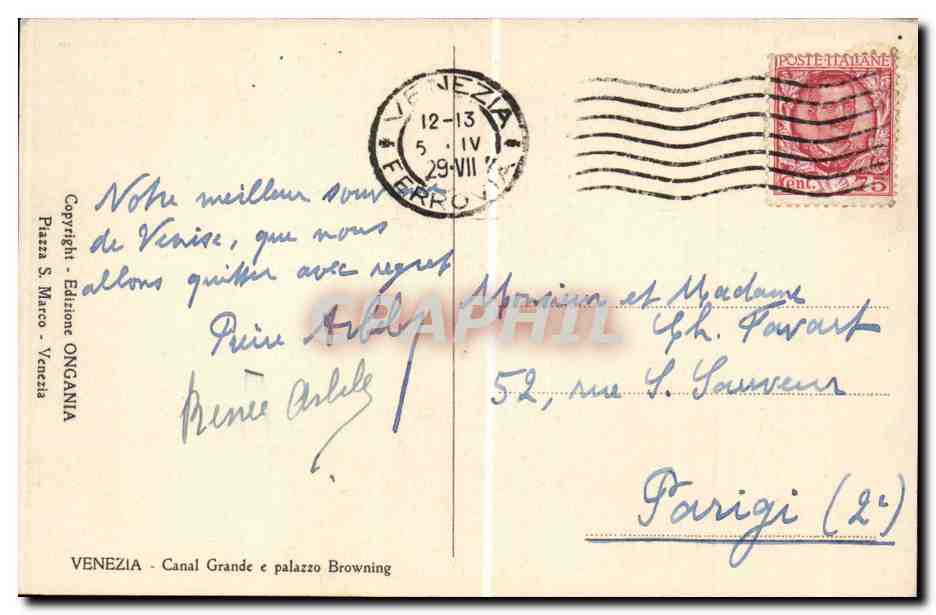 VENEZIA
12-13
5 · IV
29·VII
FERROVIA
POSTE·ITALIANE
Cent. 75
Notre meilleur souvenir
de Venise, que nous
allons quitter avec regret
Renée
Monsieur et Madame
Ch. Favart
52, rue S. Sauveur
Parigi (2e)
Copyright - Edizione ONGANIA
Piazza S. Marco - Venezia
CPAPHIL
VENEZIA - Canal Grande e palazzo Browning